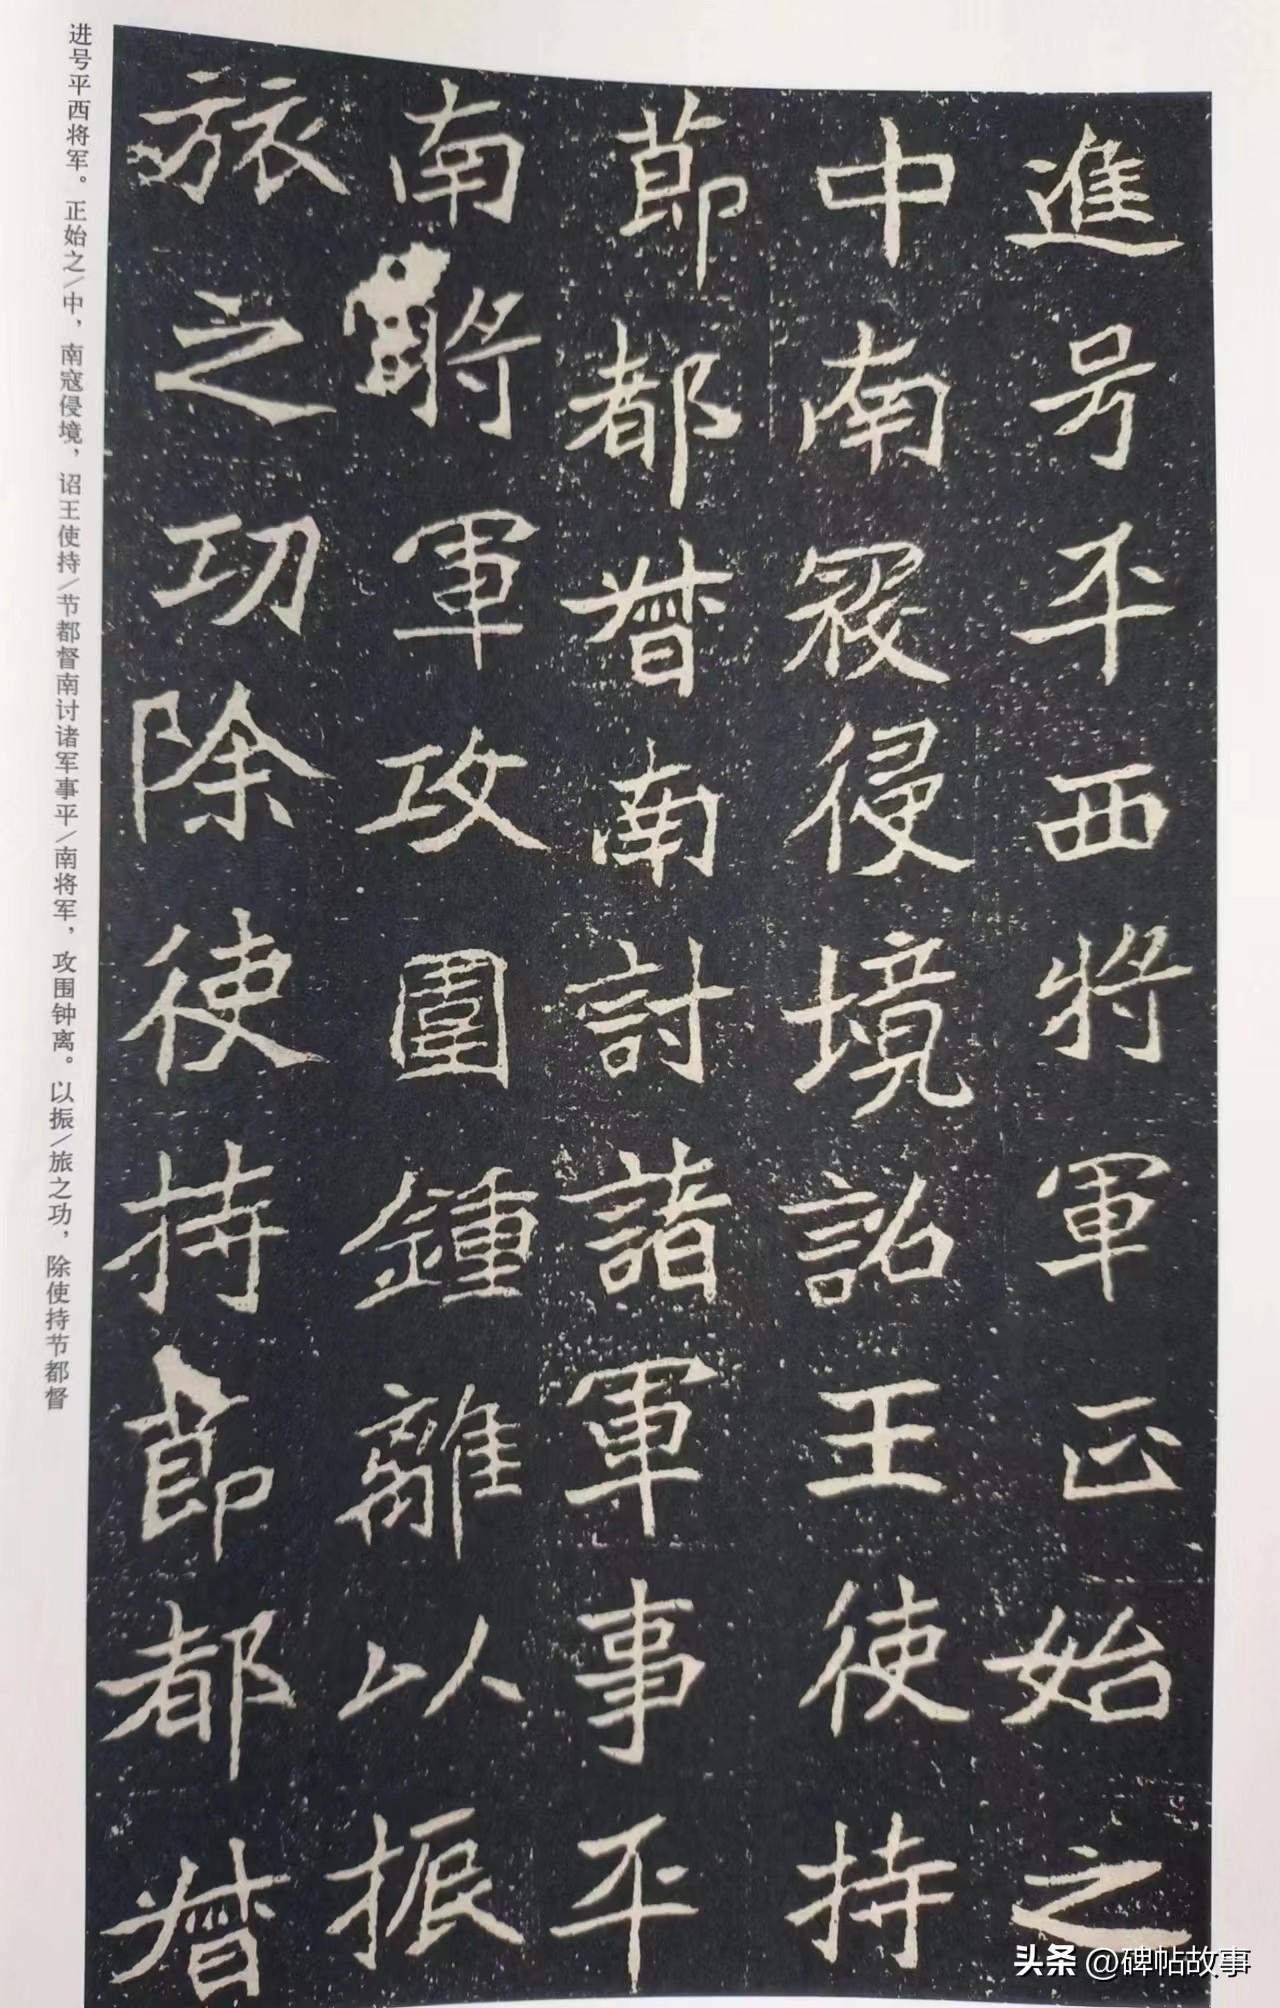 進号平西將軍正始之
中南寇侵境詔王使持
節都督南討諸軍事平
南將軍攻圍鍾離以振
旅之功除使持節都督
进号平西将军。正始之/中，南寇侵境，诏王使持/节都督南讨诸军事平/南将军，攻围钟离。以振/旅之功，除使持节都督
头条 @碑帖故事